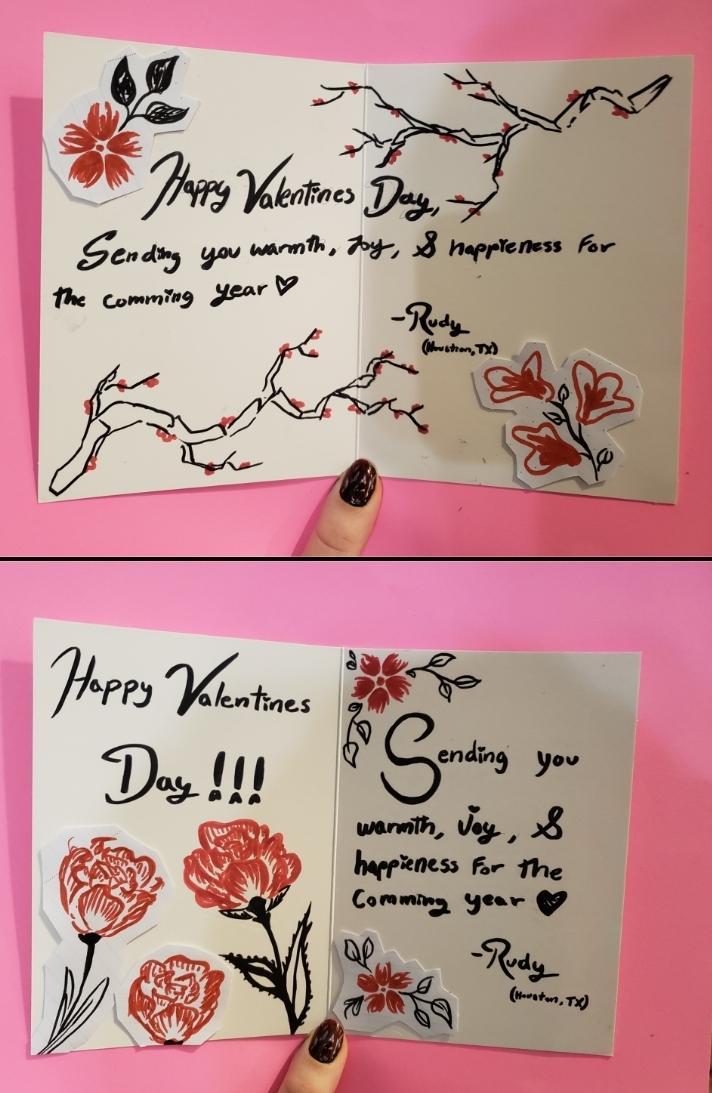 Happy Valentines Day,
Sending you warmth, Joy, & happieness for
the comming year ♡
-Rudy
(Houston, TX)
Happy Valentines
Day !!!
Sending you
warmth, Joy, &
happieness for the
Comming year ♥
-Rudy
(Houston, TX)